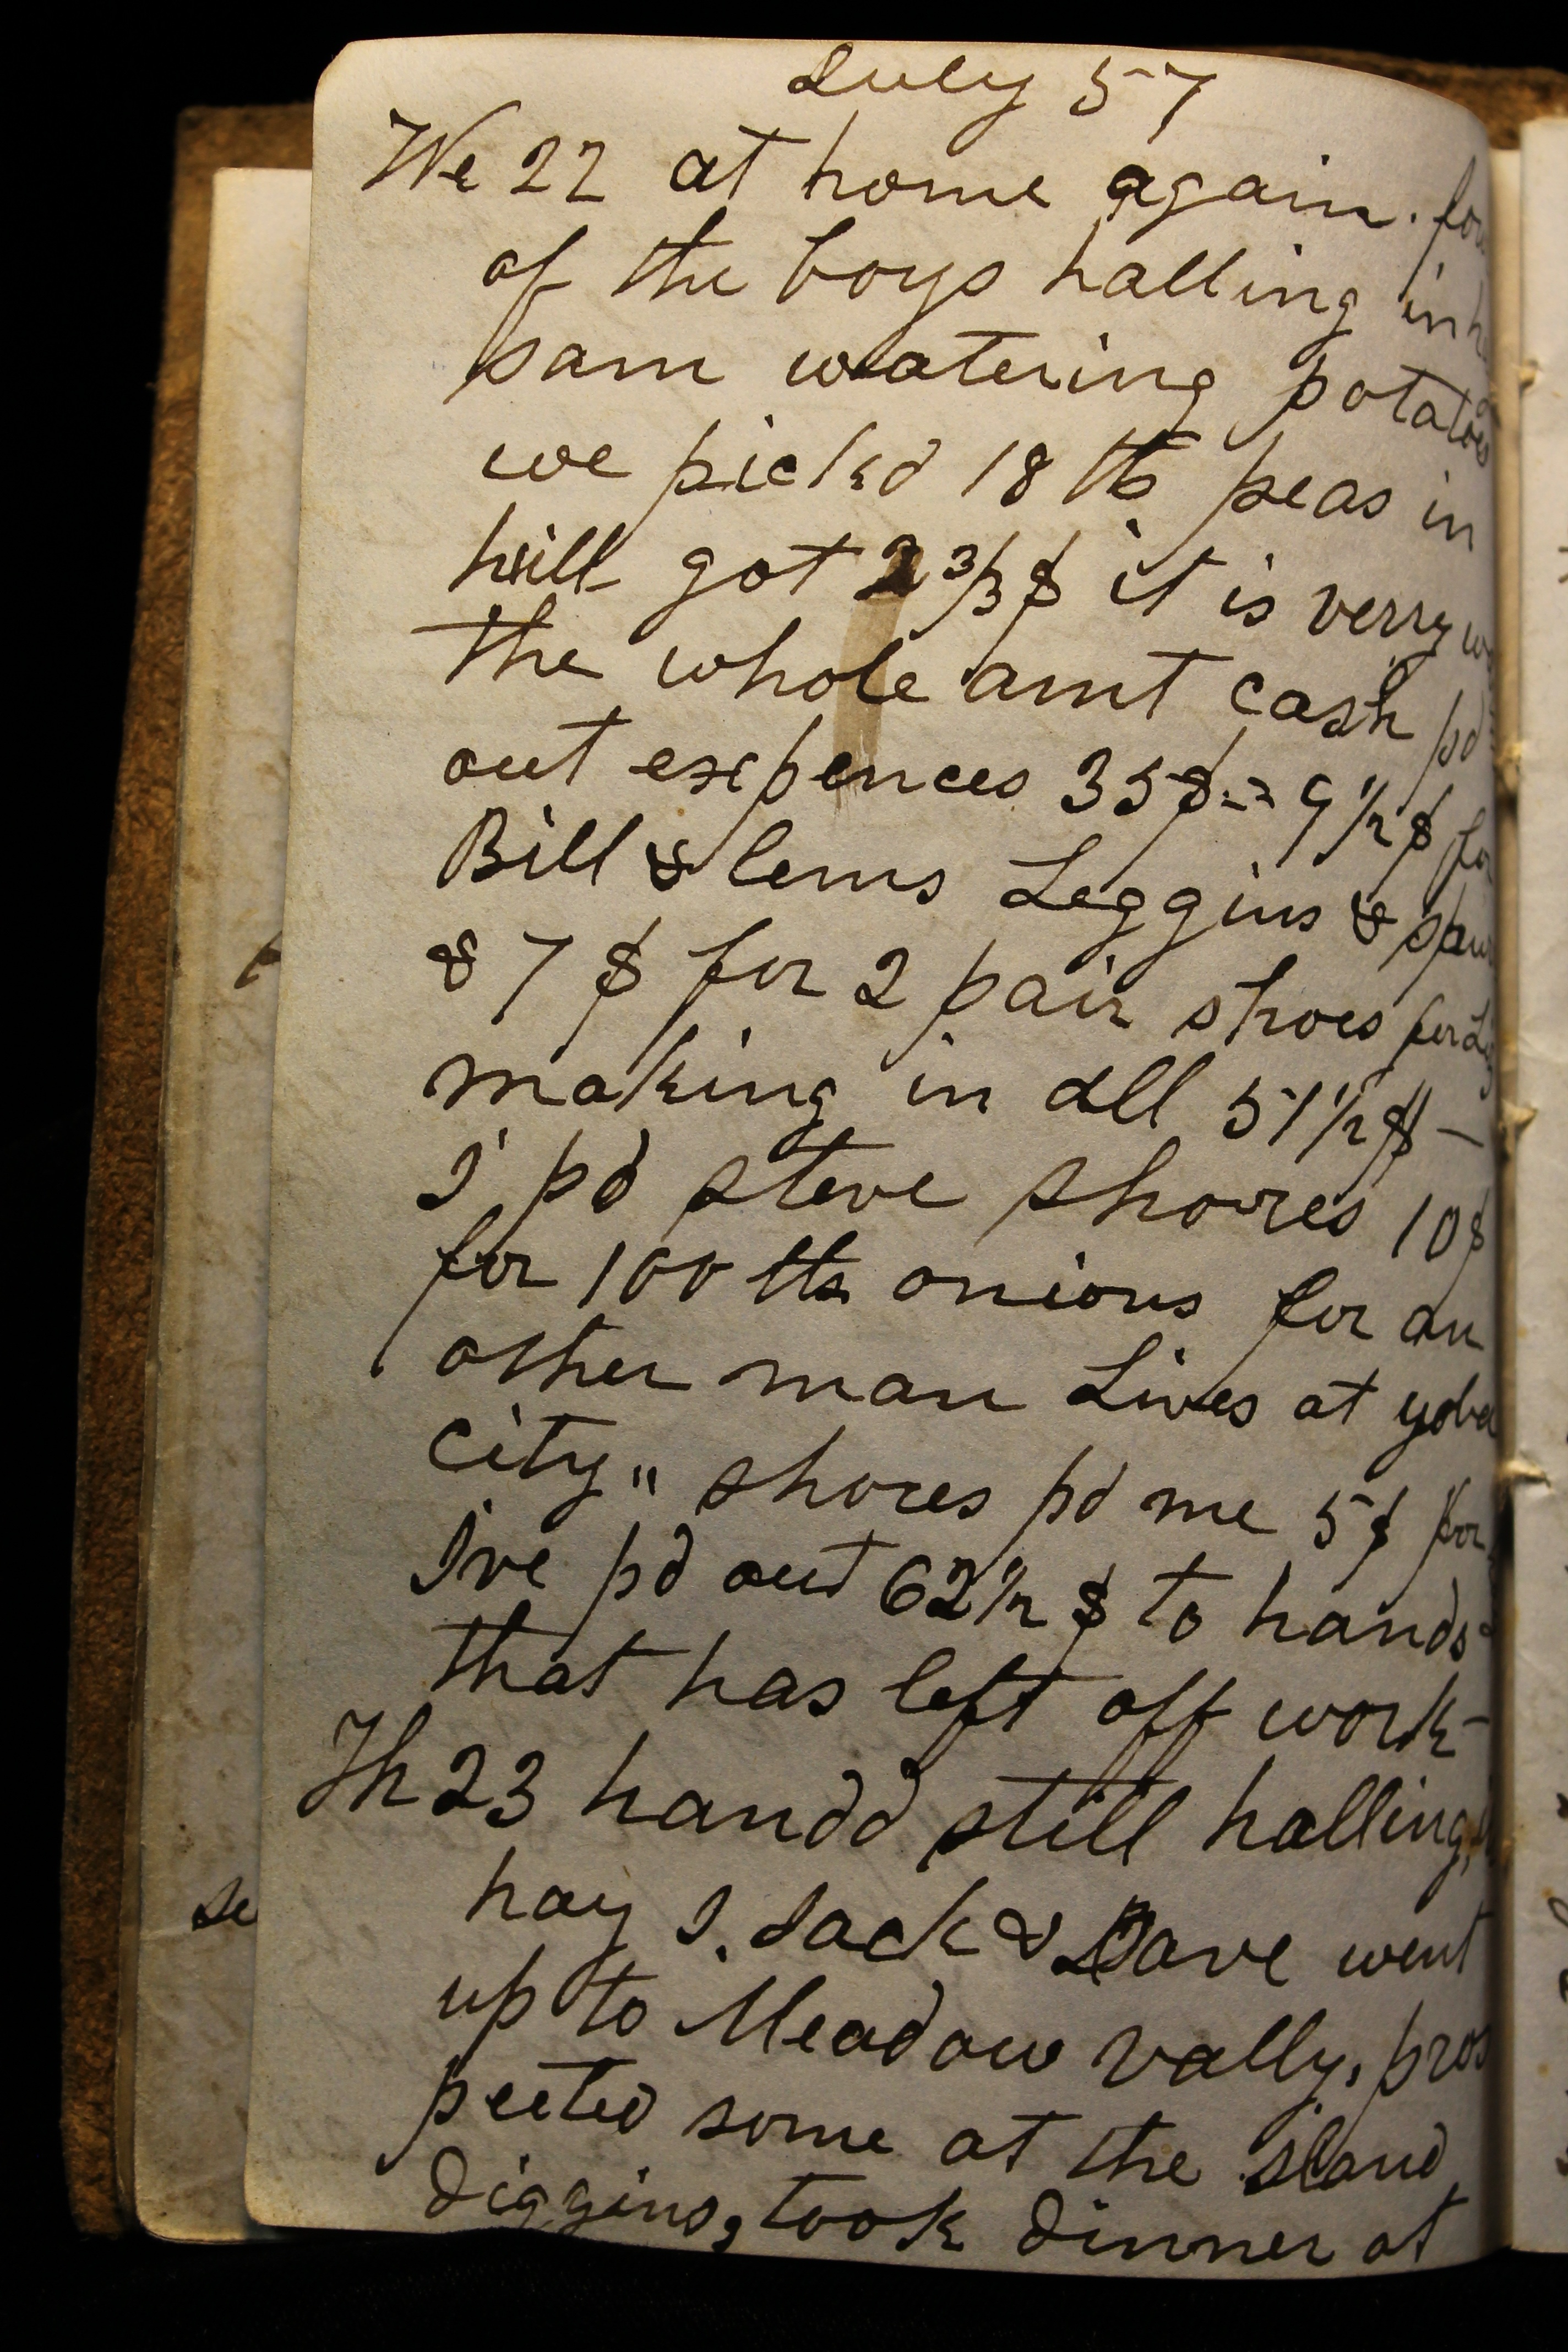 July 57
We 22 at home again. four
of the boys halling in
Sam watering potatoes
we pickd 18 lb peas in
hill got 2 3/3 $ it is verry
the whole amt cash pd
out expences 35$ = 9 1/2 $ for
Bill & lems Leggins &
& 7 $ for 2 pair shoes for
making in all 51 1/2 $ -
I, pd steve shores 10$
for 100 lbs onions for an
other man Lives at yoba
city " shores pd me 5$ for
I've pd out 62 1/2 $ to hands
that has left off work -
Th 23 handd still halling
hay I. Jack & Dave went
up to Meadow vally, pros
pected some at the sland
diggins, took dinner at
se